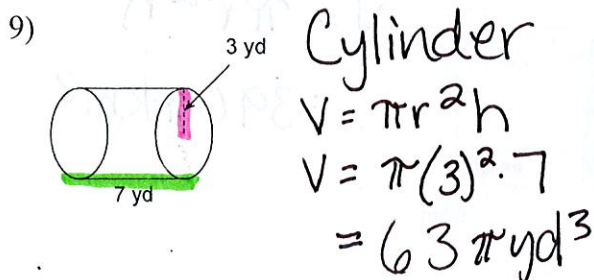 9)
3 yd
7 yd
Cylinder
V = πr²h
V = π(3)²·7
= 63πyd³